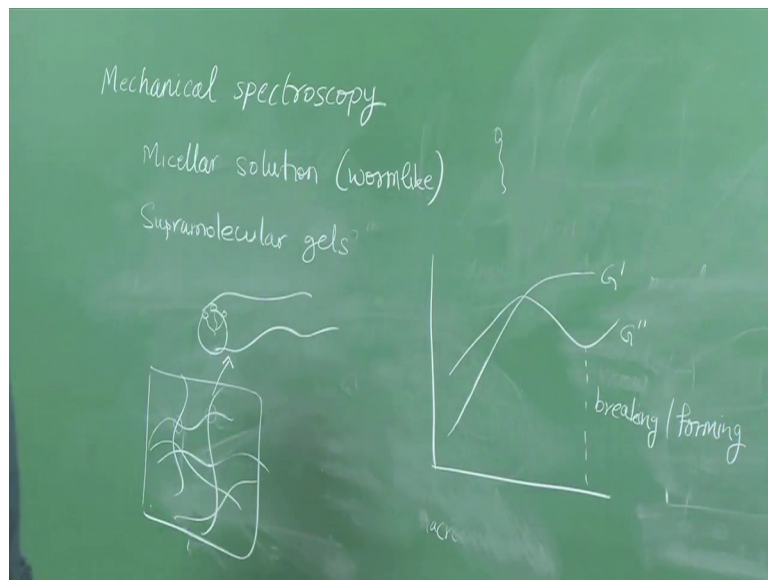 Mechanical spectroscopy
Micellar solution (wormlike)
Supramolecular gels
G'
G"
breaking / forming